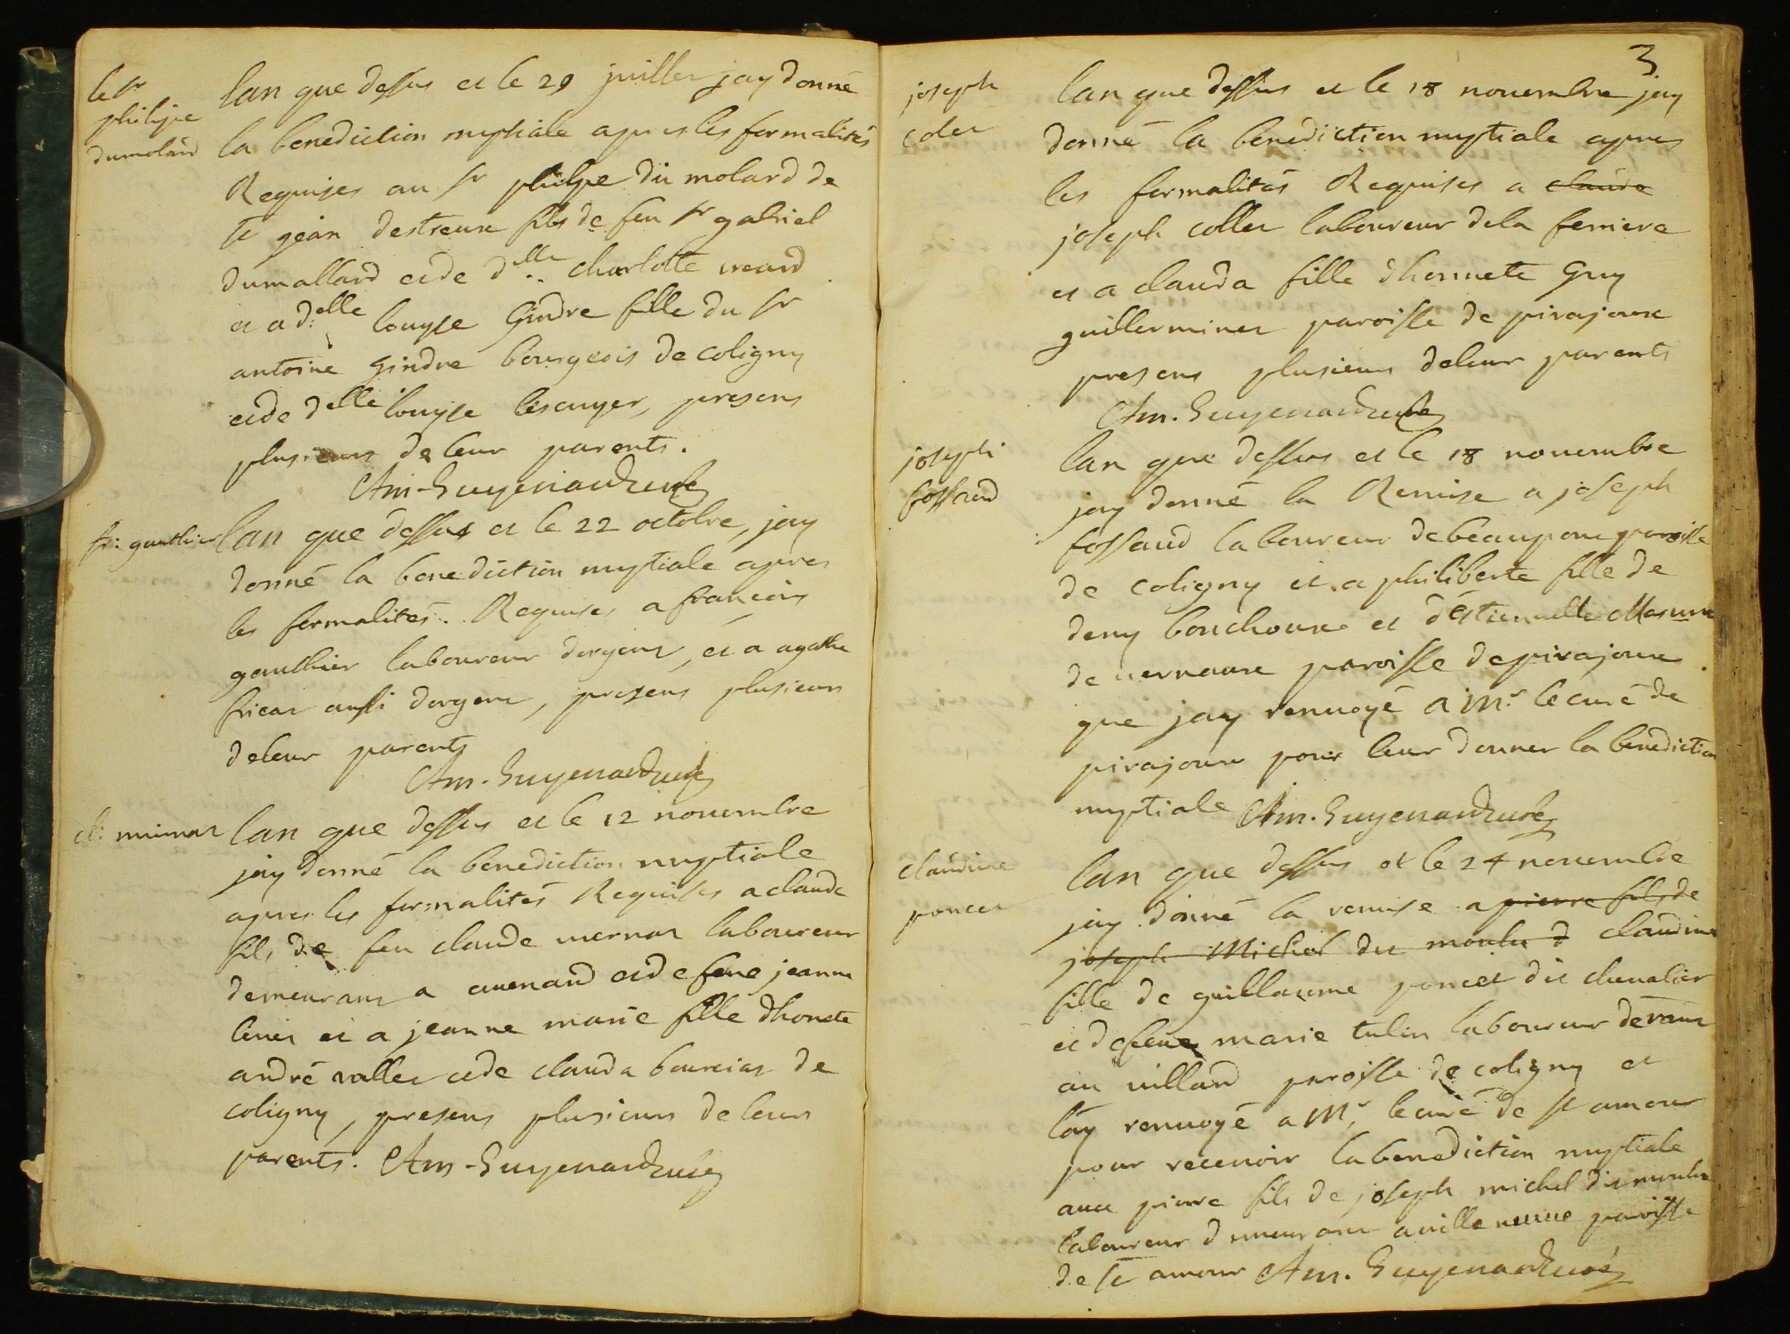 le sr
philipe
dumolard
lan que dessus et le 29 juillet jay donné
la benediction nuptiale apres les formalités
Requises au sr philipe du molard de
st jean destreux fils de feu sr gabriel
dumollard et de delle charlotte
et a delle louyse Gindre fille du sr
antoine Gindre bourgeois de coligny
et de delle louyse lescuyer, presens
plusieurs de leur parents.
Am-Guyenard curé
fr: gauthier
lan que dessus et le 22 octobre, jay
donné la benediction nuptiale apres
les formalités Requises a françois
gauthier laboureur dorgent, et a agathe
fricat aussi dorgent, presens plusieurs
de leur parents
Am-Guyenard curé
cl:
lan que dessus et le 12 novembre
jay donné la benediction nuptiale
apres les formalités Requises a claude
fils de feu claude laboureur
demeurant a et de feue jeanne
et a jeanne marie fille dhonete
andré et de clauda de
coligny, presens plusieurs de leurs
parents. Am-Guyenard curé
3
joseph
colet
lan que dessus et le 18 novembre jay
donné la benediction nuptiale apres
les formalités Requises a claude
joseph collet laboureur de la
et a clauda fille dhonnete Guy
guillerminet paroisse de pirajoux
presens plusieurs de leur parents
Am. Guyenard curé
joseph
fossaud
lan que dessus et le 18 novembre
jay donné la Remise a joseph
fossaud laboureur de beaupont paroisse
de coligny et a philiberte fille de
deny bouchoux et destiennette
de vernoux paroisse de pirajoux
que jay renvoyé a Mr le curé de
pirajoux pour leur donner la benediction
nuptiale Am. Guyenard curé
claudine
poncet
lan que dessus et le 24 novembre
jay donné la remise a pierre fils de
joseph Michel dit moulu d claudine
fille de guillaume poncet dit chevalier
et de feue marie tulin laboureur
au villard paroisse de coligny et
lay renvoyé a Mr le curé de st amour
pour recevoir la benediction nuptiale
avec pierre fils de joseph michel dit moulu
laboureur demeurant a villeneuve paroisse
de st amour Am. Guyenard curé